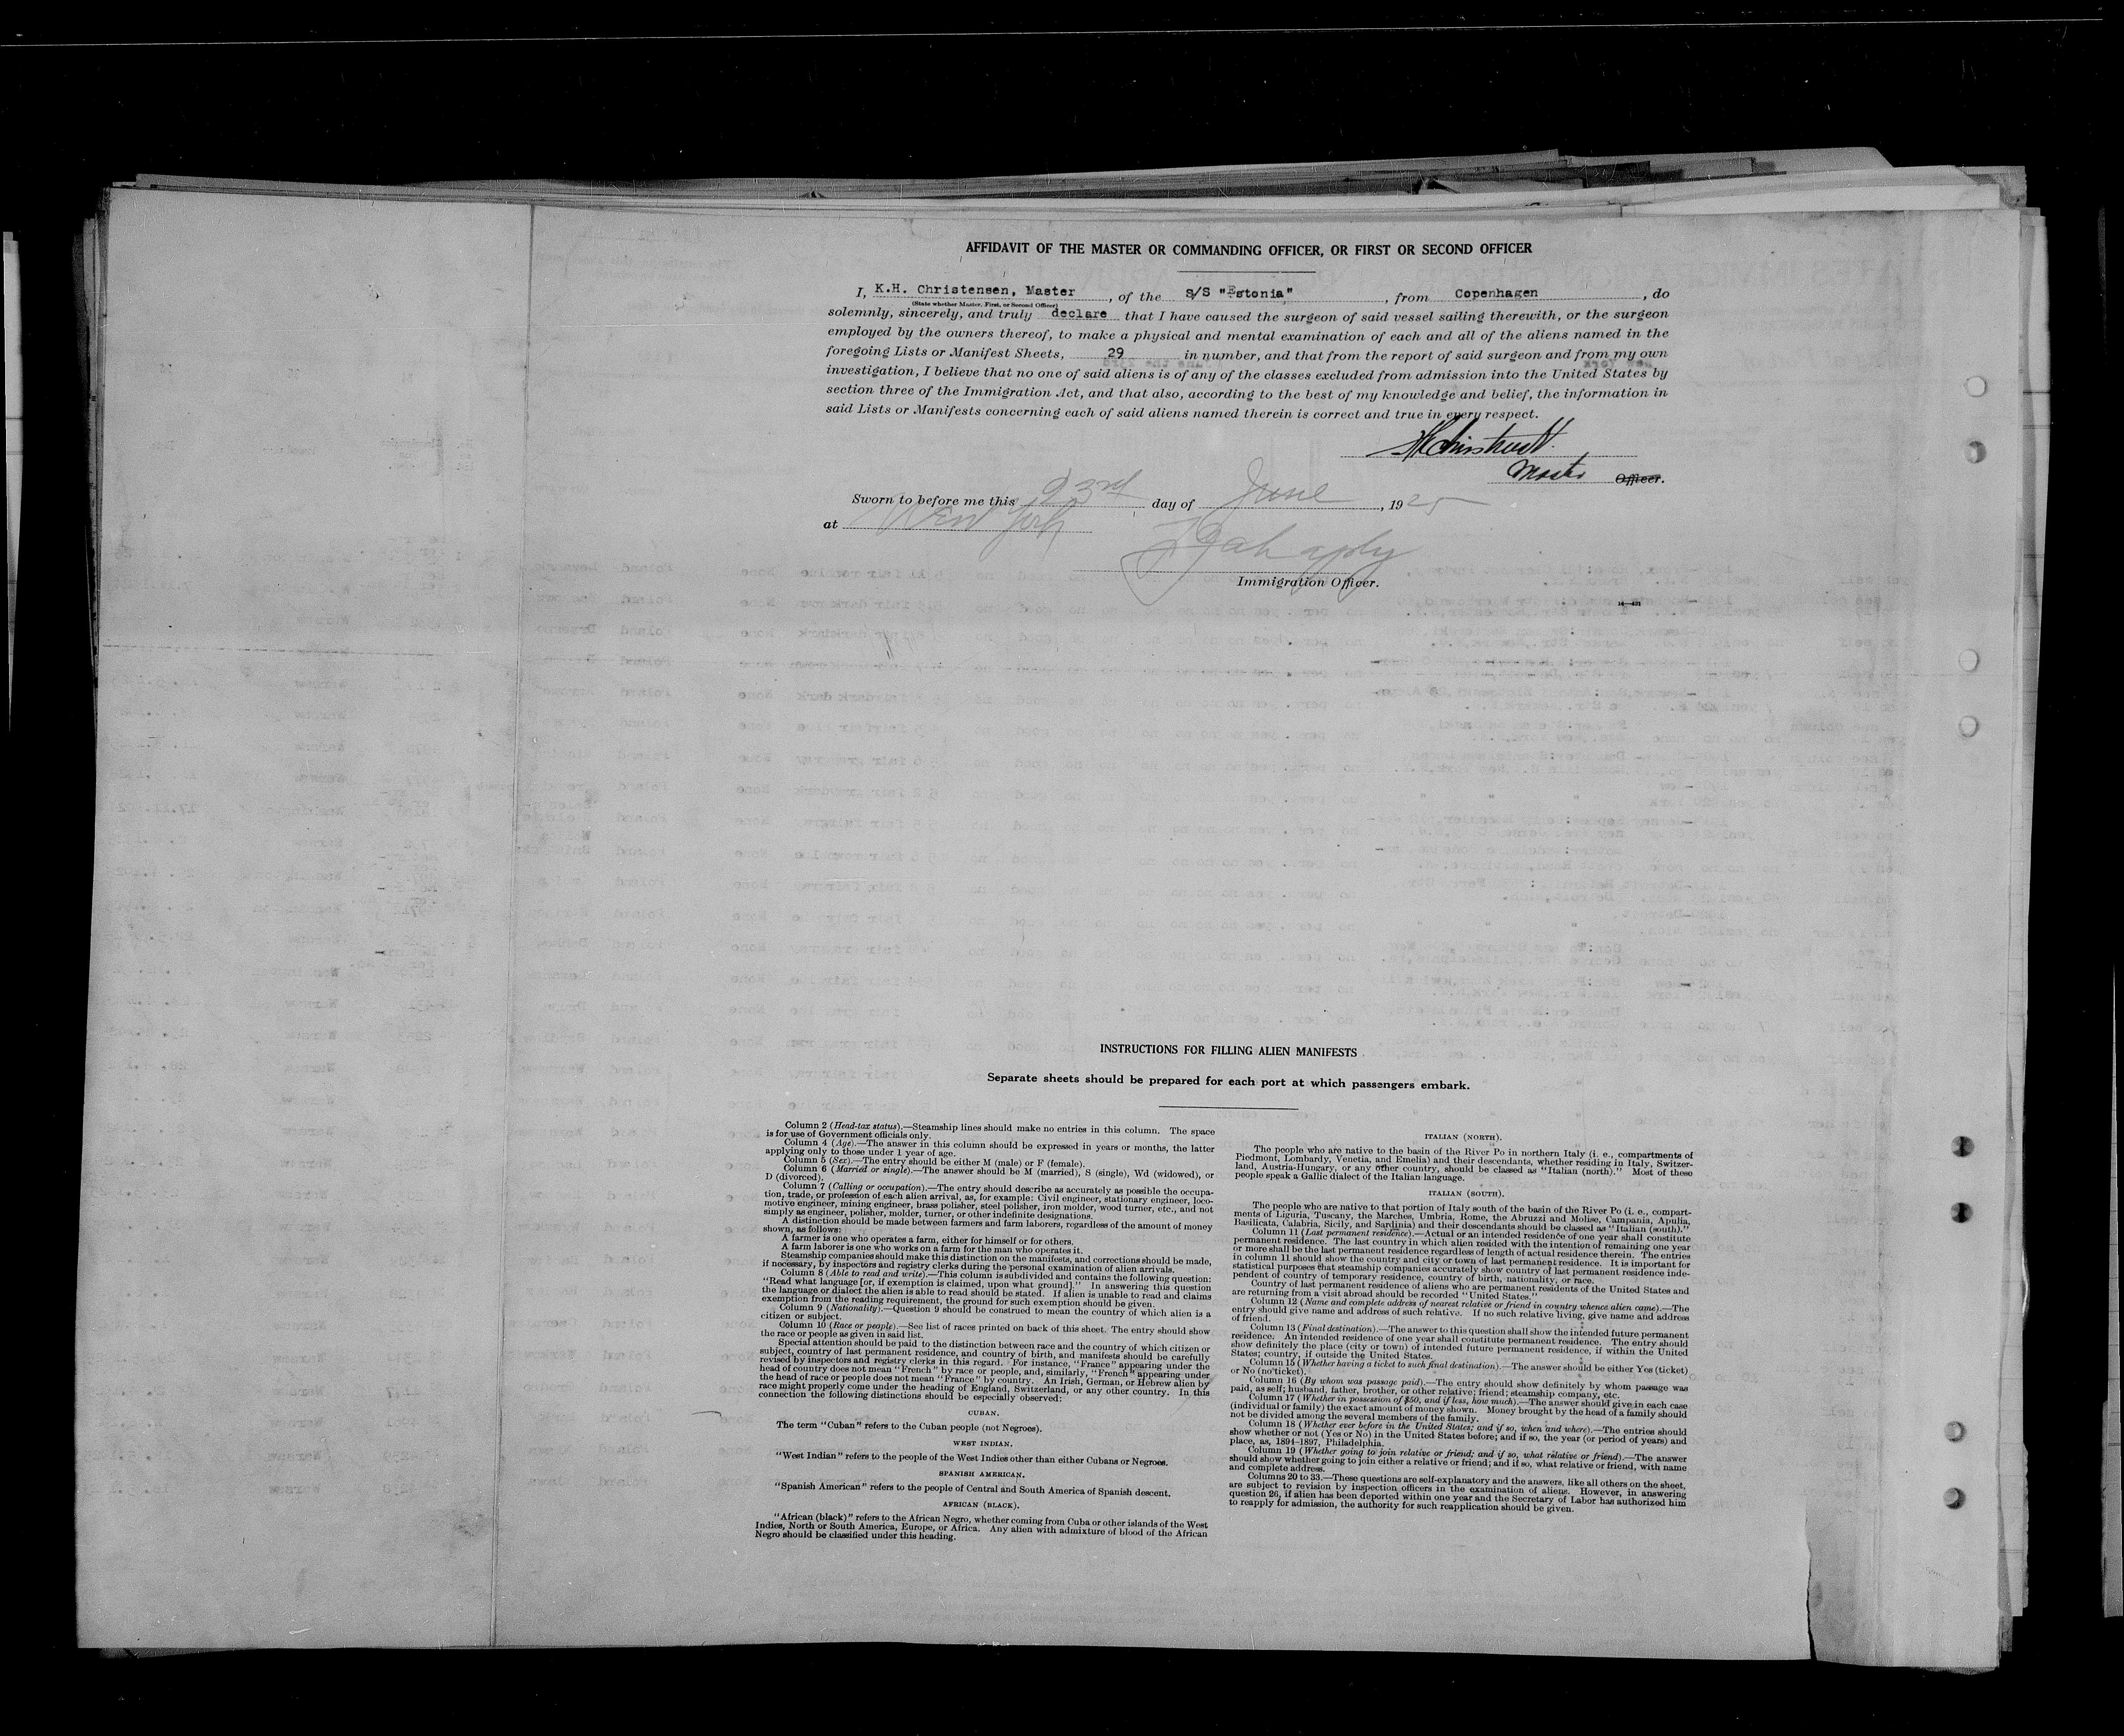 AFFIDAVIT OF THE MASTER OR COMMANDING OFFICER, OR FIRST OR SECOND OFFICER
I, K.H. Christensen, Master, of the S/S "Estonia", from Copenhagen, do
(State whether Master, First, or Second Officer)
solemnly, sincerely, and truly declare that I have caused the surgeon of said vessel sailing therewith, or the surgeon
employed by the owners thereof, to make a physical and mental examination of each and all of the aliens named in the
foregoing Lists or Manifest Sheets, 29 in number, and that from the report of said surgeon and from my own
investigation, I believe that no one of said aliens is of any of the classes excluded from admission into the United States by
section three of the Immigration Act, and that also, according to the best of my knowledge and belief, the information in
said Lists or Manifests concerning each of said aliens named therein is correct and true in every respect.
Master Officer.
Sworn to before me this 23rd day of June, 1925
at New York
Immigration Officer.
INSTRUCTIONS FOR FILLING ALIEN MANIFESTS
Separate sheets should be prepared for each port at which passengers embark.
Column 2 (Head-tax status).—Steamship lines should make no entries in this column. The space
is for use of Government officials only.
Column 4 (Age).—The answer in this column should be expressed in years or months, the latter
applying only to those under 1 year of age.
Column 5 (Sex).—The entry should be either M (male) or F (female).
Column 6 (Married or single).—The answer should be M (married), S (single), Wd (widowed), or
D (divorced).
Column 7 (Calling or occupation).—The entry should describe as accurately as possible the occupa-
tion, trade, or profession of each alien arrival, as, for example: Civil engineer, stationary engineer, loco-
motive engineer, mining engineer, brass polisher, steel polisher, iron molder, wood turner, etc., and not
simply as engineer, polisher, molder, turner, or other indefinite designations.
A distinction should be made between farmers and farm laborers, regardless of the amount of money
shown, as follows:
A farmer is one who operates a farm, either for himself or for others.
A farm laborer is one who works on a farm for the man who operates it.
Steamship companies should make this distinction on the manifests, and corrections should be made,
if necessary, by inspectors and registry clerks during the personal examination of alien arrivals.
Column 8 (Able to read and write).—This column is subdivided and contains the following question:
"Read what language [or, if exemption is claimed, upon what ground]." In answering this question
the language or dialect the alien is able to read should be stated. If alien is unable to read and claims
exemption from the reading requirement, the ground for such exemption should be given.
Column 9 (Nationality).—Question 9 should be construed to mean the country of which alien is a
citizen or subject.
Column 10 (Race or people).—See list of races printed on back of this sheet. The entry should show
the race or people as given in said list.
Special attention should be paid to the distinction between race and the country of which citizen or
subject, country of last permanent residence, and country of birth, and manifests should be carefully
revised by inspectors and registry clerks in this regard. For instance, "France" appearing under the
head of country does not mean "French" by race or people, and, similarly, "French" appearing under
the head of race or people does not mean "France" by country. An Irish, German, or Hebrew alien by
race might properly come under the heading of England, Switzerland, or any other country. In this
connection the following distinctions should be especially observed:
CUBAN.
The term "Cuban" refers to the Cuban people (not Negroes).
WEST INDIAN.
"West Indian" refers to the people of the West Indies other than either Cubans or Negroes.
SPANISH AMERICAN.
"Spanish American" refers to the people of Central and South America of Spanish descent.
AFRICAN (BLACK).
"African (black)" refers to the African Negro, whether coming from Cuba or other islands of the West
Indies, North or South America, Europe, or Africa. Any alien with admixture of blood of the African
Negro should be classified under this heading.
ITALIAN (NORTH).
The people who are native to the basin of the River Po in northern Italy (i. e., compartments of
Piedmont, Lombardy, Venetia, and Emelia) and their descendants, whether residing in Italy, Switzer-
land, Austria-Hungary, or any other country, should be classed as "Italian (north)." Most of these
people speak a Gallic dialect of the Italian language.
ITALIAN (SOUTH).
The people who are native to that portion of Italy south of the basin of the River Po (i. e., compart-
ments of Liguria, Tuscany, the Marches, Umbria, Rome, the Abruzzi and Molise, Campania, Apulia,
Basilicata, Calabria, Sicily, and Sardinia) and their descendants should be classed as "Italian (south)."
Column 11 (Last permanent residence).—Actual or an intended residence of one year shall constitute
permanent residence. The last country in which alien resided with the intention of remaining one year
or more shall be the last permanent residence regardless of length of actual residence therein. The entries
in column 11 should show the country and city or town of last permanent residence. It is important for
statistical purposes that steamship companies accurately show country of last permanent residence inde-
pendent of country of temporary residence, country of birth, nationality, or race.
Country of last permanent residence of aliens who are permanent residents of the United States and
are returning from a visit abroad should be recorded "United States."
Column 12 (Name and complete address of nearest relative or friend in country whence alien came).—The
entry should give name and address of such relative. If no such relative living, give name and address
of friend.
Column 13 (Final destination).—The answer to this question shall show the intended future permanent
residence. An intended residence of one year shall constitute permanent residence. The entry should
show definitely the place (city or town) of intended future permanent residence, if within the United
States; country, if outside the United States.
Column 15 (Whether having a ticket to such final destination).—The answer should be either Yes (ticket)
or No (no ticket).
Column 16 (By whom was passage paid).—The entry should show definitely by whom passage was
paid, as self; husband, father, brother, or other relative; friend; steamship company, etc.
Column 17 (Whether in possession of $50, and if less, how much).—The answer should give in each case
(individual or family) the exact amount of money shown. Money brought by the head of a family should
not be divided among the several members of the family.
Column 18 (Whether ever before in the United States; and if so, when and where).—The entries should
show whether or not (Yes or No) in the United States before; and if so, the year (or period of years) and
place, as, 1894-1897, Philadelphia.
Column 19 (Whether going to join relative or friend; and if so, what relative or friend).—The answer
should show whether going to join either a relative or friend; and if so, what relative or friend, with name
and complete address.
Columns 20 to 33.—These questions are self-explanatory and the answers, like all others on the sheet,
are subject to revision by inspection officers in the examination of aliens. However, in answering
question 26, if alien has been deported within one year and the Secretary of Labor has authorized him
to reapply for admission, the authority for such reapplication should be given.